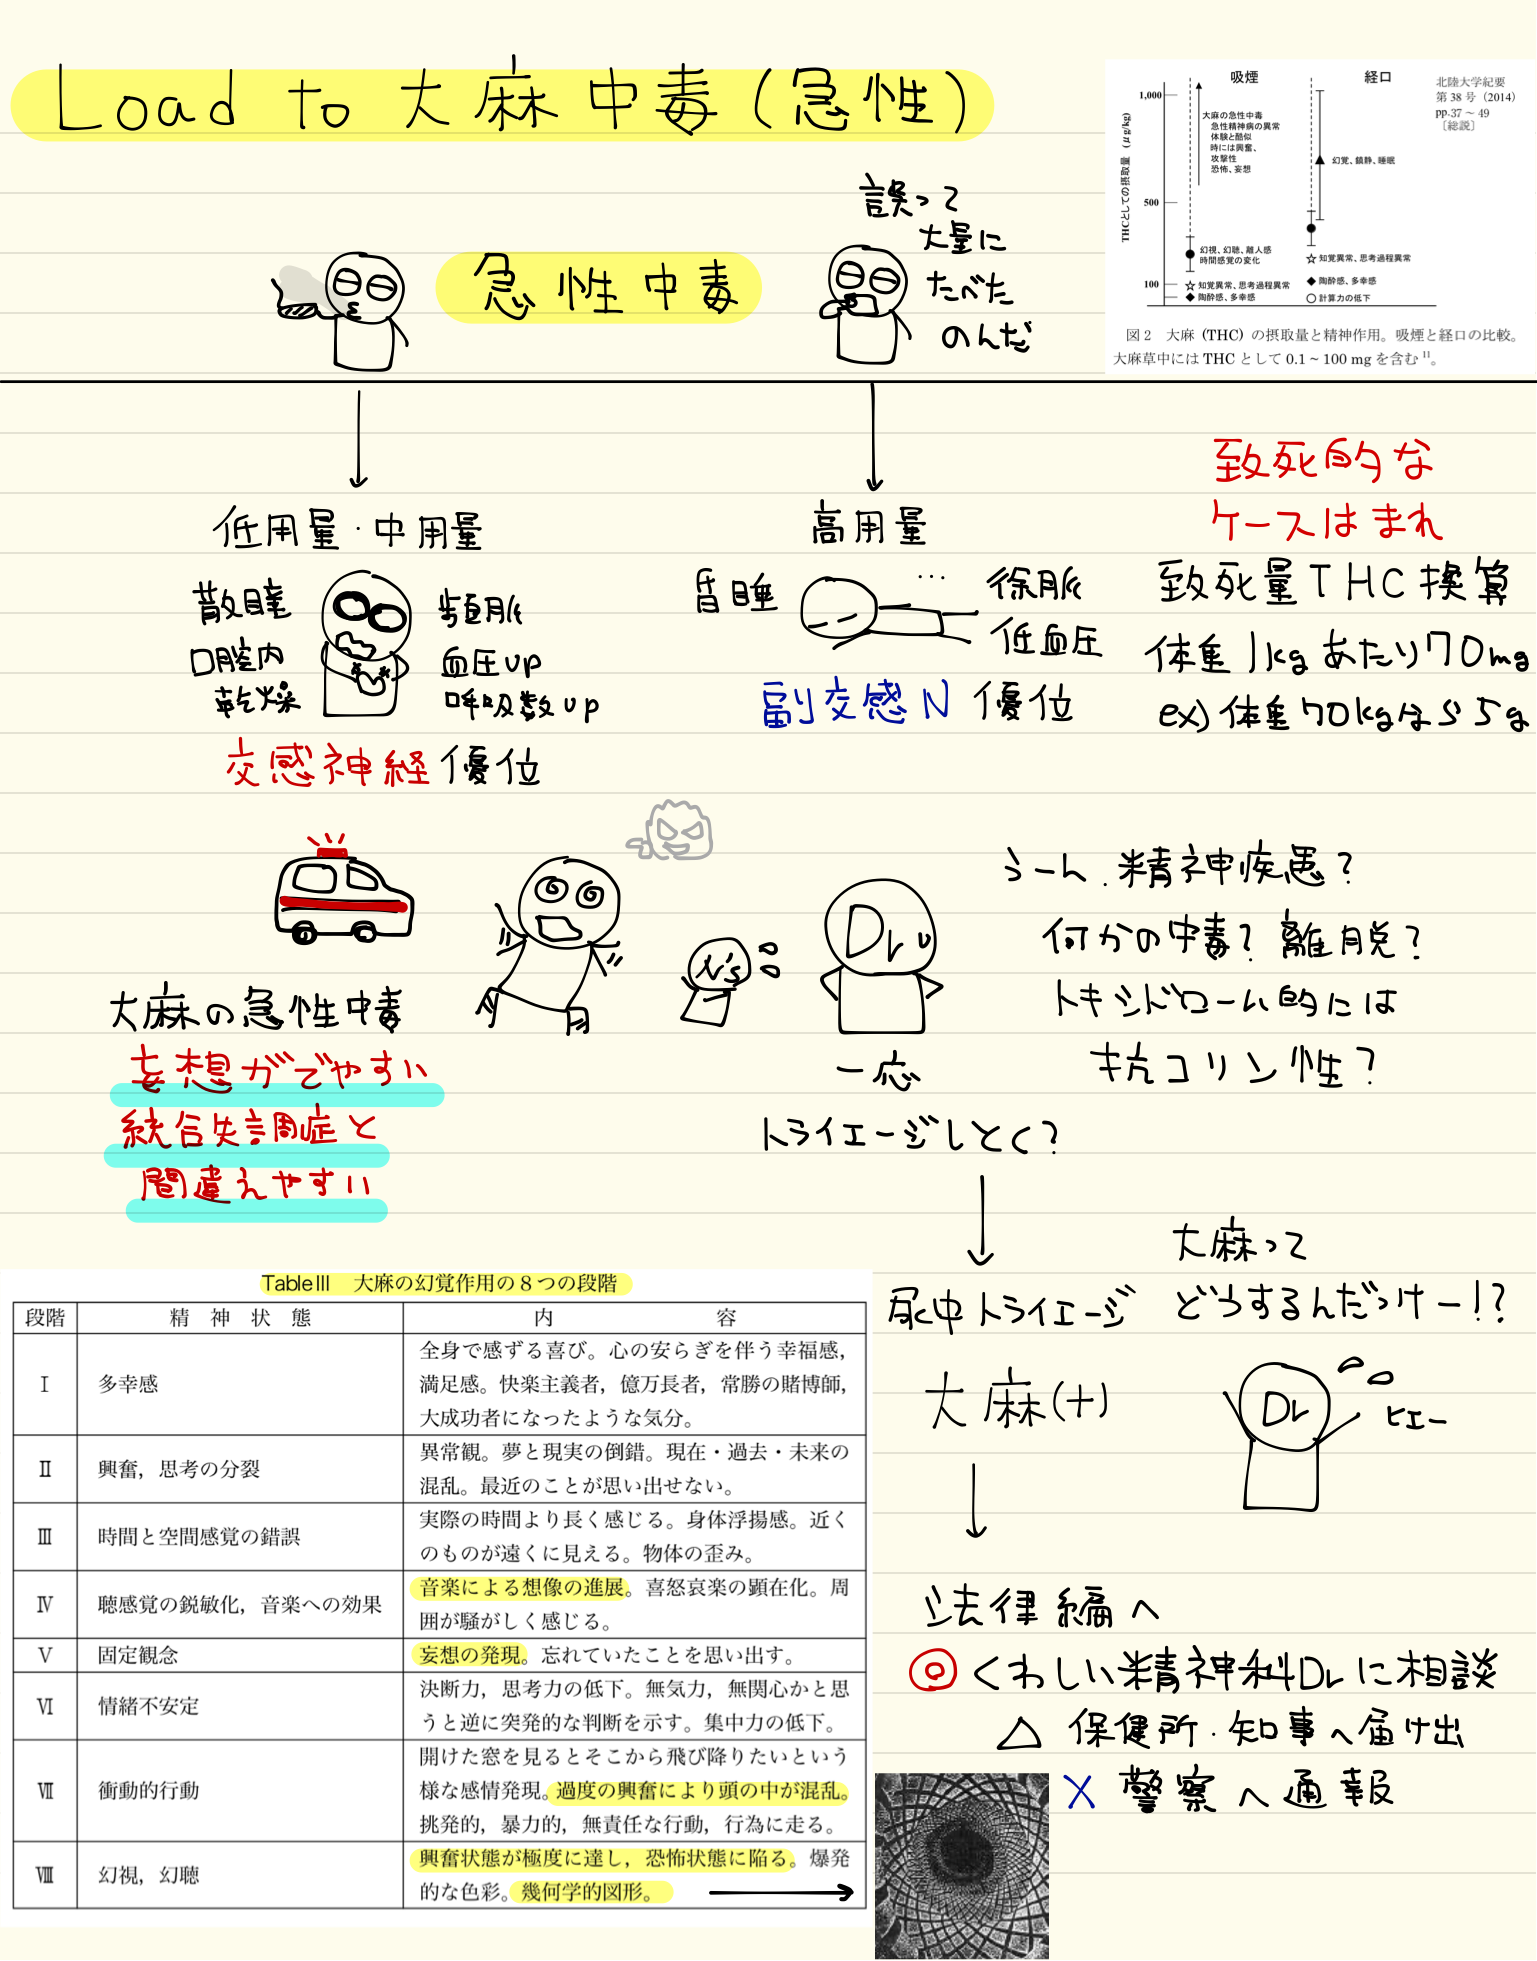 Load to 大麻中毒(急性)
吸煙 経口
北陸大学紀要
第38号(2014)
pp.37～49
〔総説〕
THCとしての摂取量 (μg/kg)
1,000
500
100
大麻の急性中毒
急性精神病の異常
体験と酷似
時には興奮、
攻撃性
恐怖、妄想
幻視、幻聴、離人感
時間感覚の変化
☆知覚異常、思考過程異常
◆陶酔感、多幸感
幻覚、鎮静、睡眠
☆知覚異常、思考過程異常
◆陶酔感、多幸感
○計算力の低下
図2 大麻 (THC) の摂取量と精神作用。吸煙と経口の比較。
大麻草中には THC として 0.1～100 mg を含む 11)。
急性中毒
誤って
大量に
たべた
のんだ
低用量・中用量
散瞳
口腔内
乾燥
頻脈
血圧up
呼吸数up
交感神経優位
高用量
昏睡
…
徐脈
低血圧
副交感N優位
致死的な
ケースはまれ
致死量THC換算
体重1kgあたり70mg
ex)体重70kgは≒5g
大麻の急性中毒
妄想がでやすい
統合失調症と
間違えやすい
N's
Dr
うーん、精神疾患?
何かの中毒? 離脱?
トキシドローム的には
抗コリン性?
一応
トライエージしとく?
尿中トライエージ
大麻(+)
大麻って
どうするんだっけー!?
Dr
ヒエー
法律編へ
◎くわしい精神科Drに相談
△保健所・知事へ届け出
×警察へ通報
TableⅢ 大麻の幻覚作用の8つの段階
段階 精神状態 内容
Ⅰ 多幸感 全身で感ずる喜び。心の安らぎを伴う幸福感，
満足感。快楽主義者，億万長者，常勝の賭博師，
大成功者になったような気分。
Ⅱ 興奮，思考の分裂 異常観。夢と現実の倒錯。現在・過去・未来の
混乱。最近のことが思い出せない。
Ⅲ 時間と空間感覚の錯誤 実際の時間より長く感じる。身体浮揚感。近く
のものが遠くに見える。物体の歪み。
Ⅳ 聴感覚の鋭敏化，音楽への効果 音楽による想像の進展。喜怒哀楽の顕在化。周
囲が騒がしく感じる。
Ⅴ 固定観念 妄想の発現。忘れていたことを思い出す。
Ⅵ 情緒不安定 決断力，思考力の低下。無気力，無関心かと思
うと逆に突発的な判断を示す。集中力の低下。
Ⅶ 衝動的行動 開けた窓を見るとそこから飛び降りたいという
様な感情発現。過度の興奮により頭の中が混乱。
挑発的，暴力的，無責任な行動，行為に走る。
Ⅷ 幻視，幻聴 興奮状態が極度に達し，恐怖状態に陥る。爆発
的な色彩。幾何学的図形。